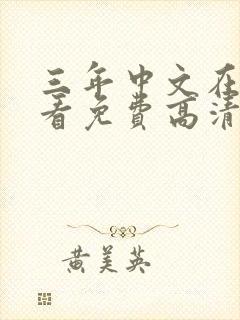 三年中文在
看免費高清
黄美英